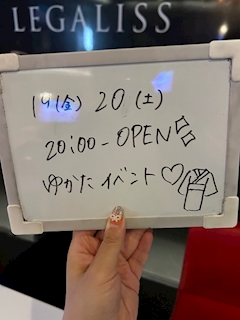 LEGALISS
19(金) 20(土)
20:00-OPEN
ゆかたイベント♡